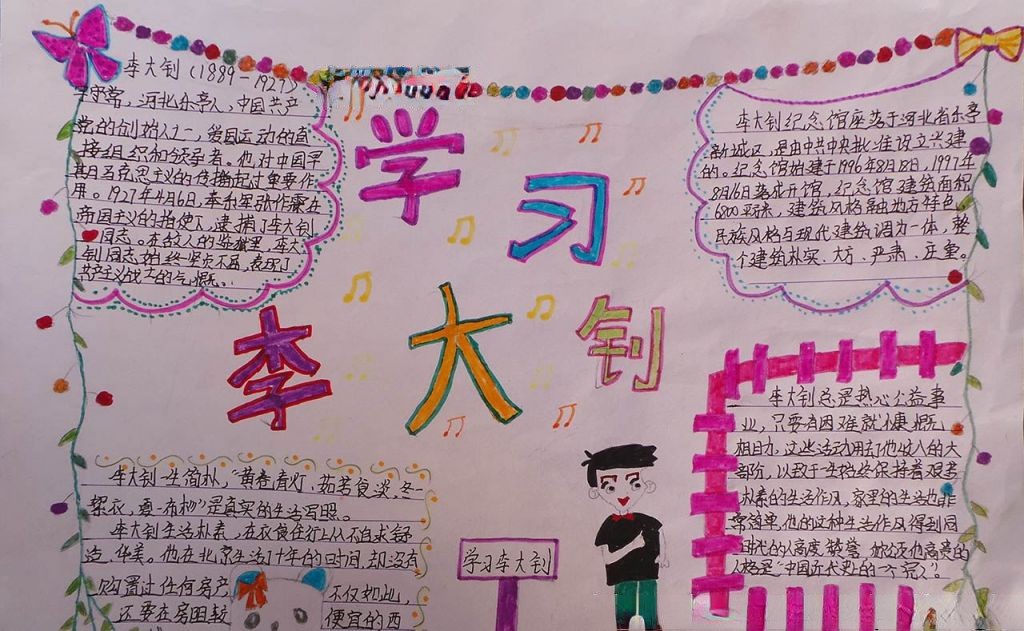 李大钊(1889-1927)
字守常,河北乐亭人,中国共产
党的创始人之一,爱国运动的直
接组织和领导者。他对中国早
期马克思主义的传播起过重要作
用。1927年4月6日,奉系军张作霖在
帝国主义的指使下,逮捕了李大钊
同志。在敌人的监狱里,李大
钊同志始终坚贞不屈,表现了
共产主义战士的气概。
学习
李大钊
李大钊纪念馆座落于河北省乐亭
新城区,是由中共中央批准设立兴建
的。纪念馆始建于1996年8月18日,1997年
8月16日落成开馆,纪念馆建筑面积
6800平方米,建筑风格融地方特色、
民族风格与现代建筑调为一体,整
个建筑朴实、大方、严肃、庄重。
李大钊总是热心公益事
业,只要有困难就慷慨
相助,这些活动用了他收入的大
部份,以致于一生始终保持着艰苦
朴素的生活作风,家里的生活也非
常简单,他的这种生活作风得到同
时代的人高度赞誉
人格是"中国近代史的一个完人"。
李大钊一生简朴,"黄卷青灯,茹苦食淡,冬一
絮衣,夏一布衫"是真实的生活写照。
李大钊生活朴素,在衣食住行上从不追求舒
适、华美。他在北京生活了十年的时间,却没有
购置过任何房产
不仅如此,
还要在房困教
便宜的西
学习李大钊